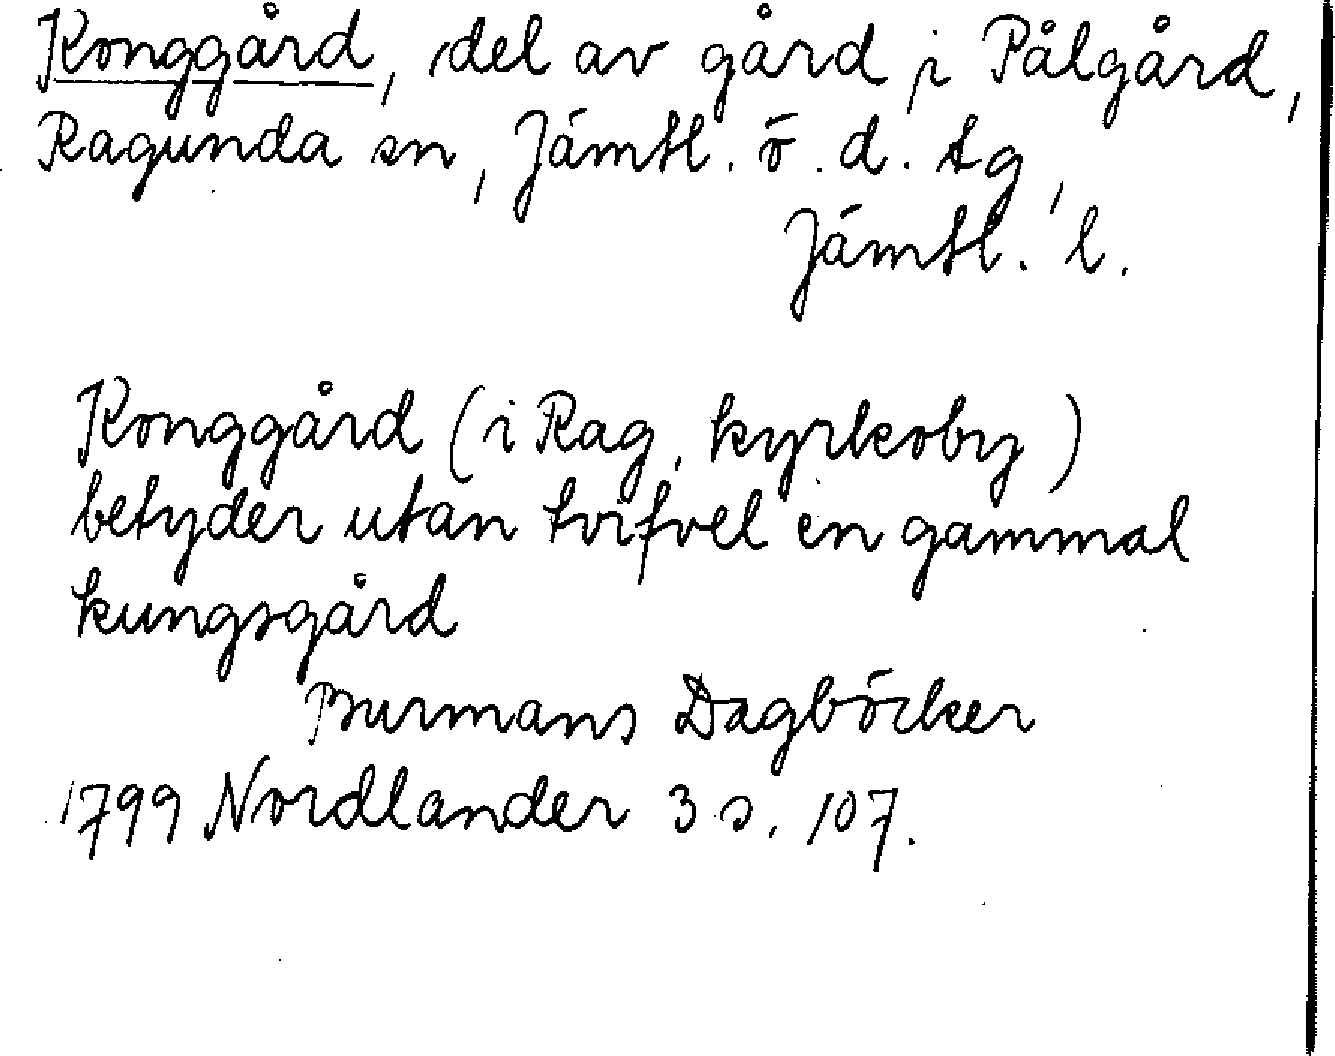 Konggård, del av gård i Pålgård,
Ragunda sn, Jämtl. ö. d. tg,
Jämtl. l.
Konggård (i Rag. kyrkoby)
betyder utan tvifvel en gammal
kungsgård
Burmans Dagböcker
1799 Nordlander 3 s. 107.